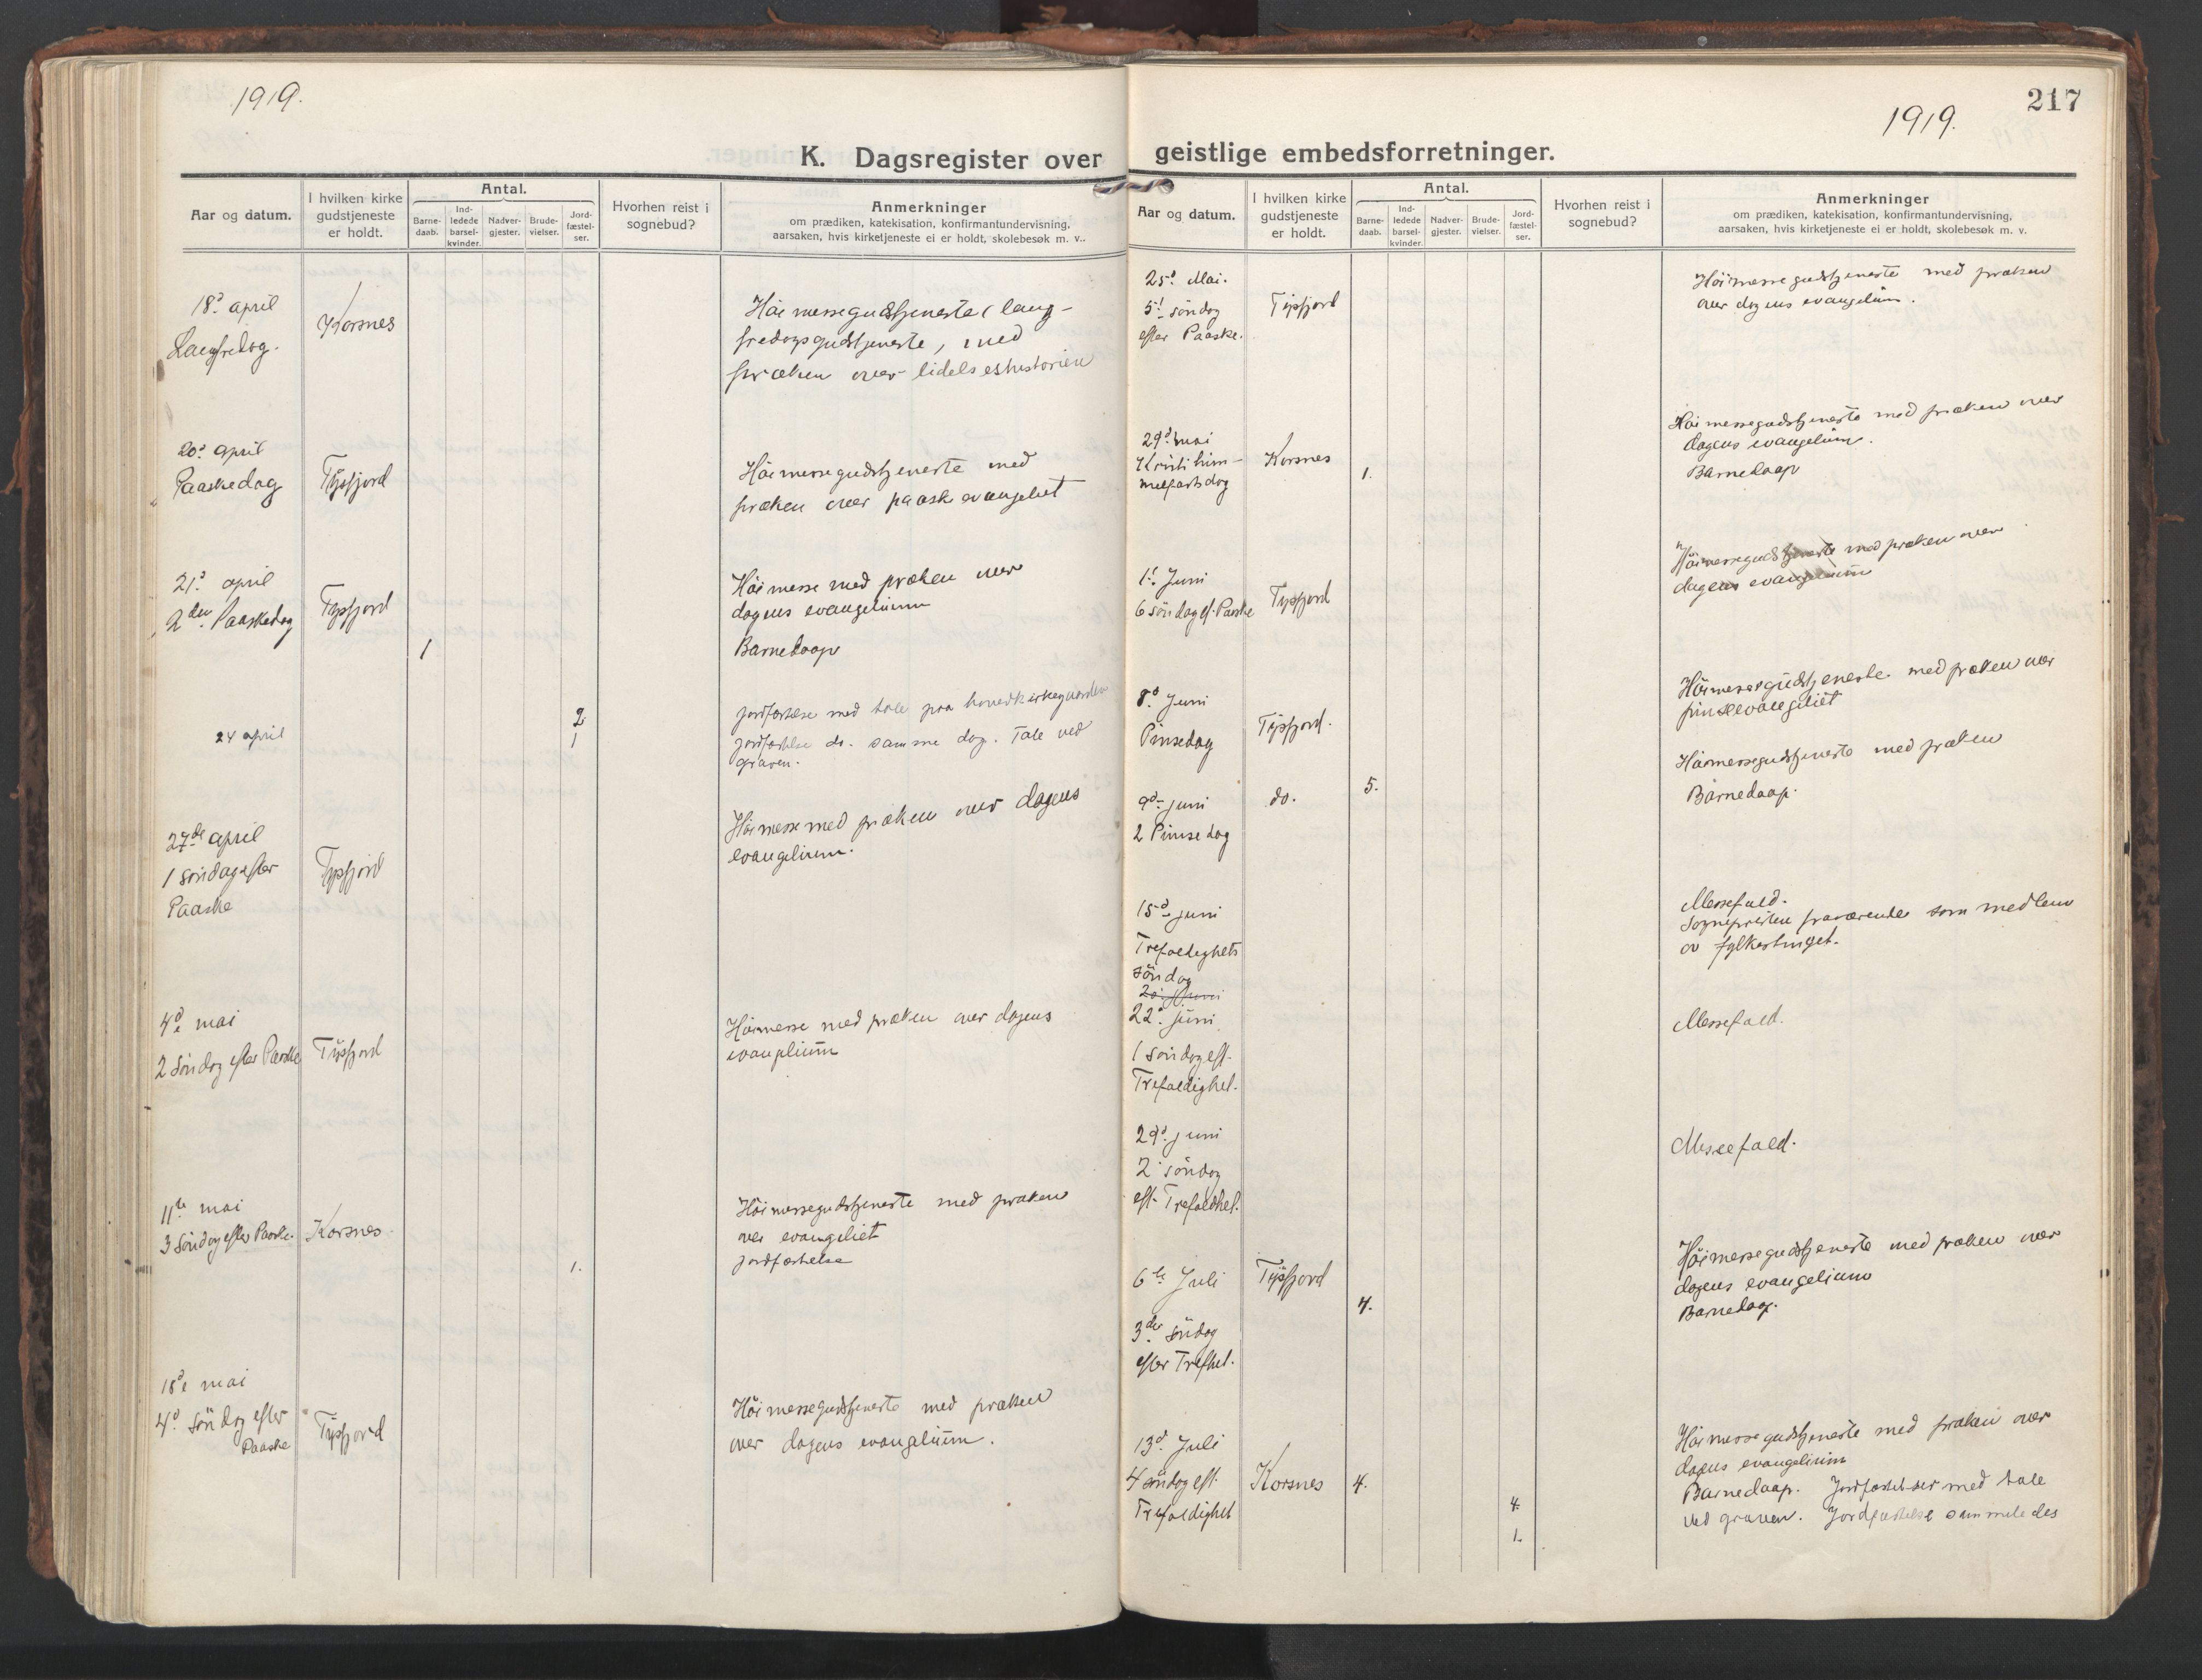 1919.
K. Dagsregister over
Aar og datum.
I hvilken kirke
gudstjeneste
er holdt.
Antal.
Barne-
daab.
Ind-
ledede
barsel-
kvinder.
Nadver-
gjester.
Brude-
vielser.
Jord-
fæstel-
ser.
Hvorhen reist i
sognebud?
Anmerkninger
om prædiken, katekisation, konfirmantundervisning,
aarsaken, hvis kirketjeneste ei er holdt, skolebesøk m. v..
18d april
Langfredag.
Korsnes
Høimessegudstjeneste (lang-
fredagsgudstjeneste, med
præken over lidelseshistorien
20d april
Paaskedag
Tysfjord
Høimessegudstjeneste med
præken over paaskeevangeliet
21d april
2den Paaskedag
Tysfjord
1
Høimesse med præken over
dagens evangelium
Barnedaap
2
jordfæstelse med tale paa hovedkirkegaarden
24 april
1
jordfæstelse do. samme dag. Tale ved
graven.
27de april
1 søndag efter
Paaske
Tysfjord
Høimesse med præken over dagens
evangelium.
4de mai
2 søndag efter Paaske
Tysfjord
Høimesse med præken over dagens
evangelium
11te mai
3 søndag efter Paaske.
Korsnes
1.
Høimessegudstjeneste med præken
over evangeliet
jordfæstelse
18de mai
4d søndag efter
Paaske
Tysfjord
Høimessegudstjeneste med præken
over dagens evangelium.
217
1919.
geistlige embedsforretninger.
Aar og datum.
I hvilken kirke
gudstjeneste
er holdt.
Antal.
Barne-
daab.
Ind-
ledede
barsel-
kvinder.
Nadver-
gjester.
Brude-
vielser.
Jord-
fæstel-
ser.
Hvorhen reist i
sognebud?
Anmerkninger
om prædiken, katekisation, konfirmantundervisning,
aarsaken, hvis kirketjeneste ei er holdt, skolebesøk m. v.
25d Mai.
5t søndag
efter Paaske.
Tysfjord
Høimessegudstjeneste med præken
over dagens evangelium.
29d mai
Kristi him-
melfartsdag
Korsnes
1.
Høimessegudstjeneste med præken over
dagens evangelium.
Barnedaap
1t Juni
6 søndag ef. Paaske
Tysfjord
Høimessegudstjeneste med præken over
dagens evangelium
8d Juni
Pinsedag
Tysfjord.
Høimessegudstjeneste med præken over
pinseevangeliet
9d juni
2 Pinsedag
do.
5.
Høimessegudstjeneste med præken
Barnedaap.
15d juni
Trefoldighets
søndag
Messefald.
Sognepresten fraværende som medlem
av fylkestinget.
20d juni
22d juni
1 søndag eft.
Trefoldighet.
Messefald.
29d juni
2 søndag
eft. Trefoldhet.
Messefald.
6te Juli
3die søndag
efter Trefhet.
Tysfjord
4.
Høimessegudstjeneste med præken over
dagens evangelium
Barnedaap.
13d Juli
4 søndag eft.
Trefoldighet
Korsnes
4.
4.
1.
Høimessegudstjeneste med præken over
dagens evangelium
Barnedaap. Jordfæstelser med tale
ved graven. Jordfæstelse sammeledes